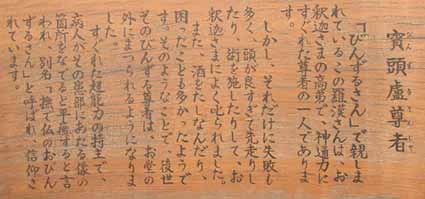 びんずるそんじゃ
賓頭盧尊者
「びんずるさん」で親しま
れているこの羅漢さんは、お
釈迦さまの高弟で、神通力に
すぐれた尊者の一人でありま
す。
しかし、それだけに失敗も
多く、頭が良すぎて先走りし
たり、術を施したりして、お
釈迦さまによく叱られました。
また、酒をたしなんだり、
困ったことも多かったようで
す。そのようなことで、後世
そのびんずる尊者は、お堂の
外にまつられるようになりま
した。
すぐれた超能力の持主で、
病人がその患部にあたる像の
箇所をなでると平癒すると言
われ、別名「撫で仏のおびん
ずるさん」と呼ばれ、信仰さ
れています。